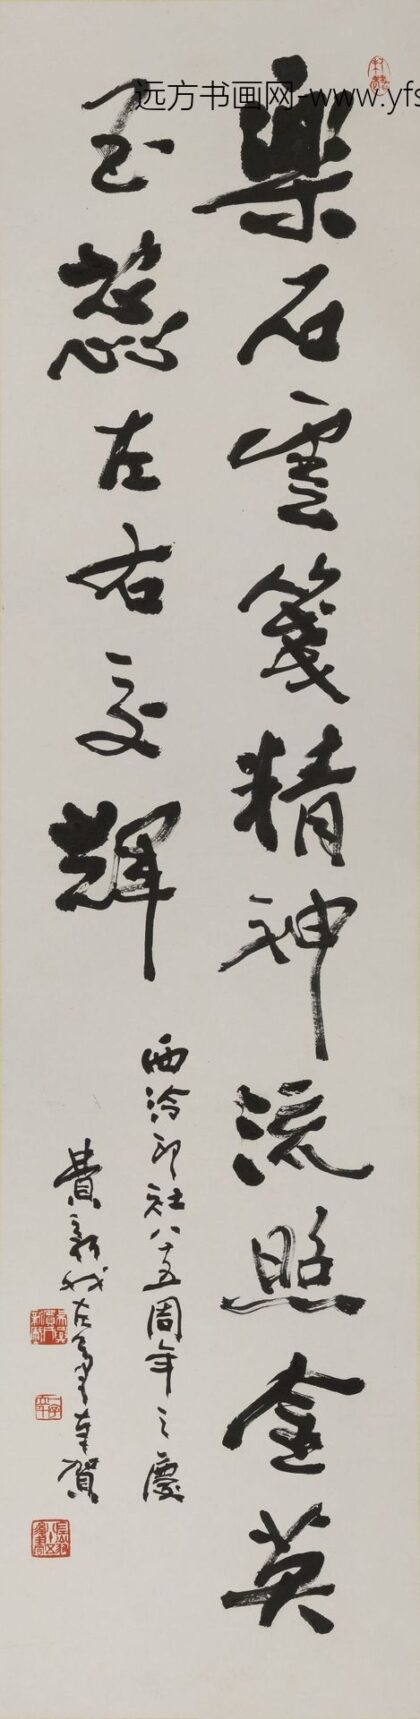 远方书画网-www.yfs
樂石雲箋精神流照金英
玉蕊左右交輝
西泠印社八十五周年之慶
費新我左手奉賀